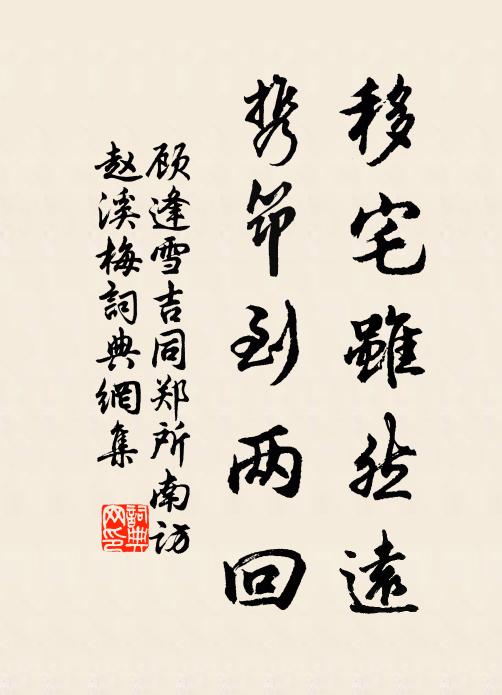 移宅雖然遠
携筇到两回
顾逢雪吉同郑所南访
赵溪梅詞典網集
詞典网印